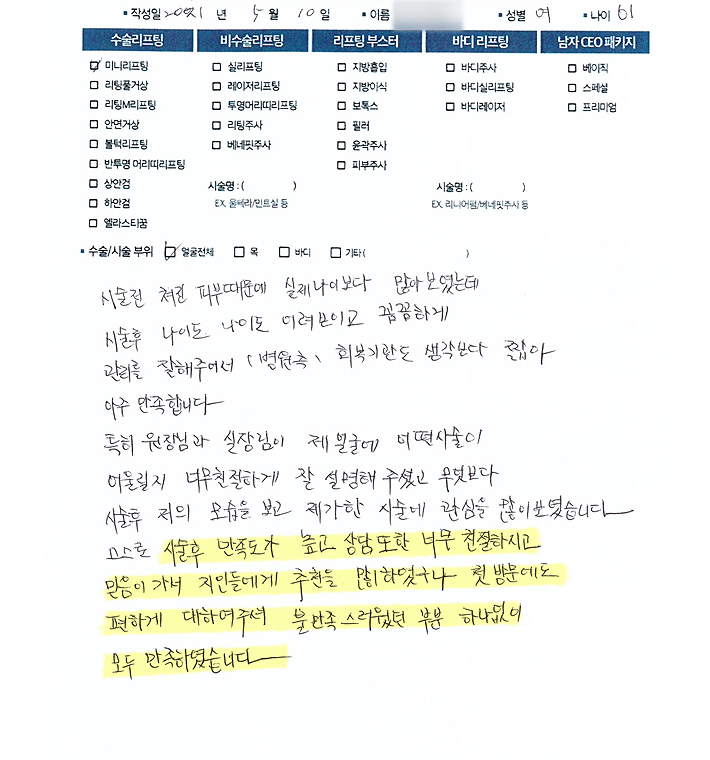 작성일 2021 년 5 월 10 일 이름 성별 여 나이 61
수술리프팅 비수술리프팅 리프팅 부스터 바디 리프팅 남자 CEO 패키지
미니리프팅 실리프팅 지방흡입 바디주사 베이직
리팅풀거상 레이저리프팅 지방이식 바디실리프팅 스페셜
리팅M리프팅 투명머리띠리프팅 보톡스 바디레이저 프리미엄
안면거상 리팅주사 필러
볼턱리프팅 베네핏주사 윤곽주사
반투명 머리띠리프팅 피부주사
상안검 시술명 : ( ) 시술명 : ( )
하안검 EX. 울쎄라/민트실 등 EX. 리니어펌/베네핏주사 등
엘라스티꿈
수술/시술 부위 얼굴전체 목 바디 기타 ( )
시술전 처진 피부때문에 실제나이보다 많아보였는데
시술후 나이도 나이도 어려보이고 꼼꼼하게
관리를 잘해주어서 (병원측) 회복기간도 생각보다 짧아
아주 만족합니다
특히 원장님과 실장님이 제 얼굴에 어떤시술이
어울릴지 너무친절하게 잘 설명해 주셨고 무엇보다
시술후 저의 모습을 보고 제가한 시술에 관심을 많이보였습니다
시술후 만족도가 높고 상담또한 너무 친절하시고
믿음이가서 지인들에게 추천을 많이하였구나 첫 방문에도
편하게 대하여주셔 불만족스러웠던 부분 하나없이
모두 만족하였습니다